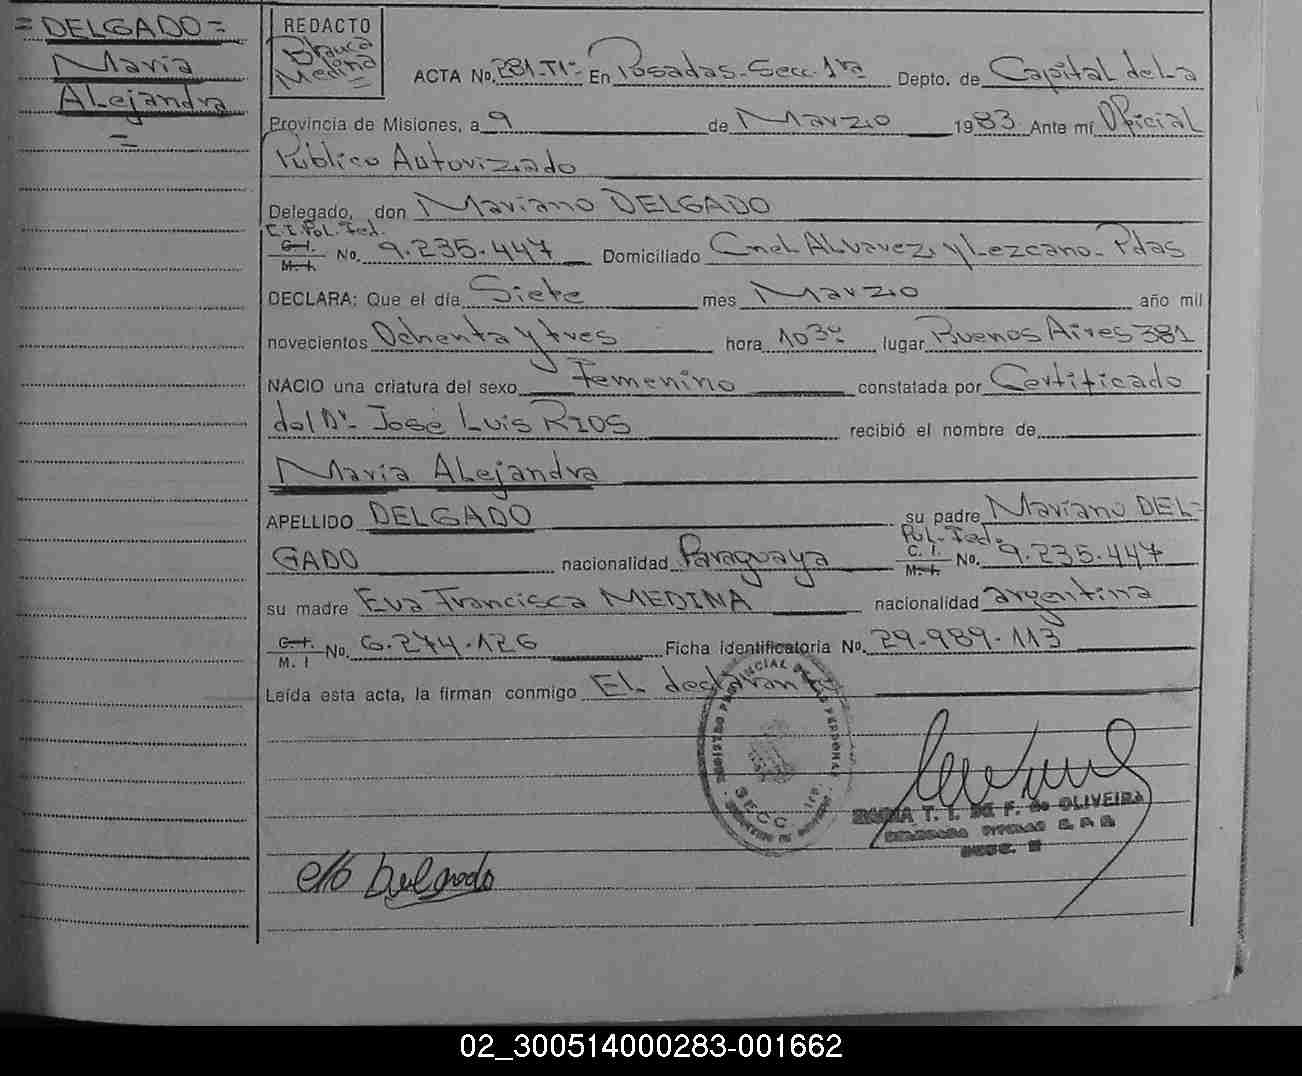 = DELGADO =
María
Alejandra
=
REDACTO
Blanca
Medina
ACTA No. 281-TI- En Posadas-Secc. 1ra Depto. de Capital de La
Provincia de Misiones, a 9 de Marzo 1983 Ante mí Oficial
Público Autorizado
Delegado, don Mariano DELGADO
C.I. Pol. Fed.
C. I.
M. I. No. 9.235.447 Domiciliado Cnel. Alvarez y Lezcano-Pdas
DECLARA: Que el día Siete mes Marzo año mil
novecientos Ochenta y tres hora 10³⁰ lugar Buenos Aires 381
NACIO una criatura del sexo Femenino constatada por Certificado
del Dr. José Luis RIOS recibió el nombre de
María Alejandra
APELLIDO DELGADO su padre Mariano DEL=
GADO nacionalidad Paraguaya Pol. Fed. C. I. M. I. No. 9.235.447
su madre Eva Francisca MEDINA nacionalidad argentina
C. I. M. I No. 6.274.126 Ficha identificatoria No. 29-989-113
Leída esta acta, la firman conmigo El declarante
REGISTRO PROVINCIAL DE LAS PERSONAS
SECC
MARIA T. I. DE F. de OLIVEIRA
DELEGADA TITULAR
SECC.
Delgado
02_300514000283-001662